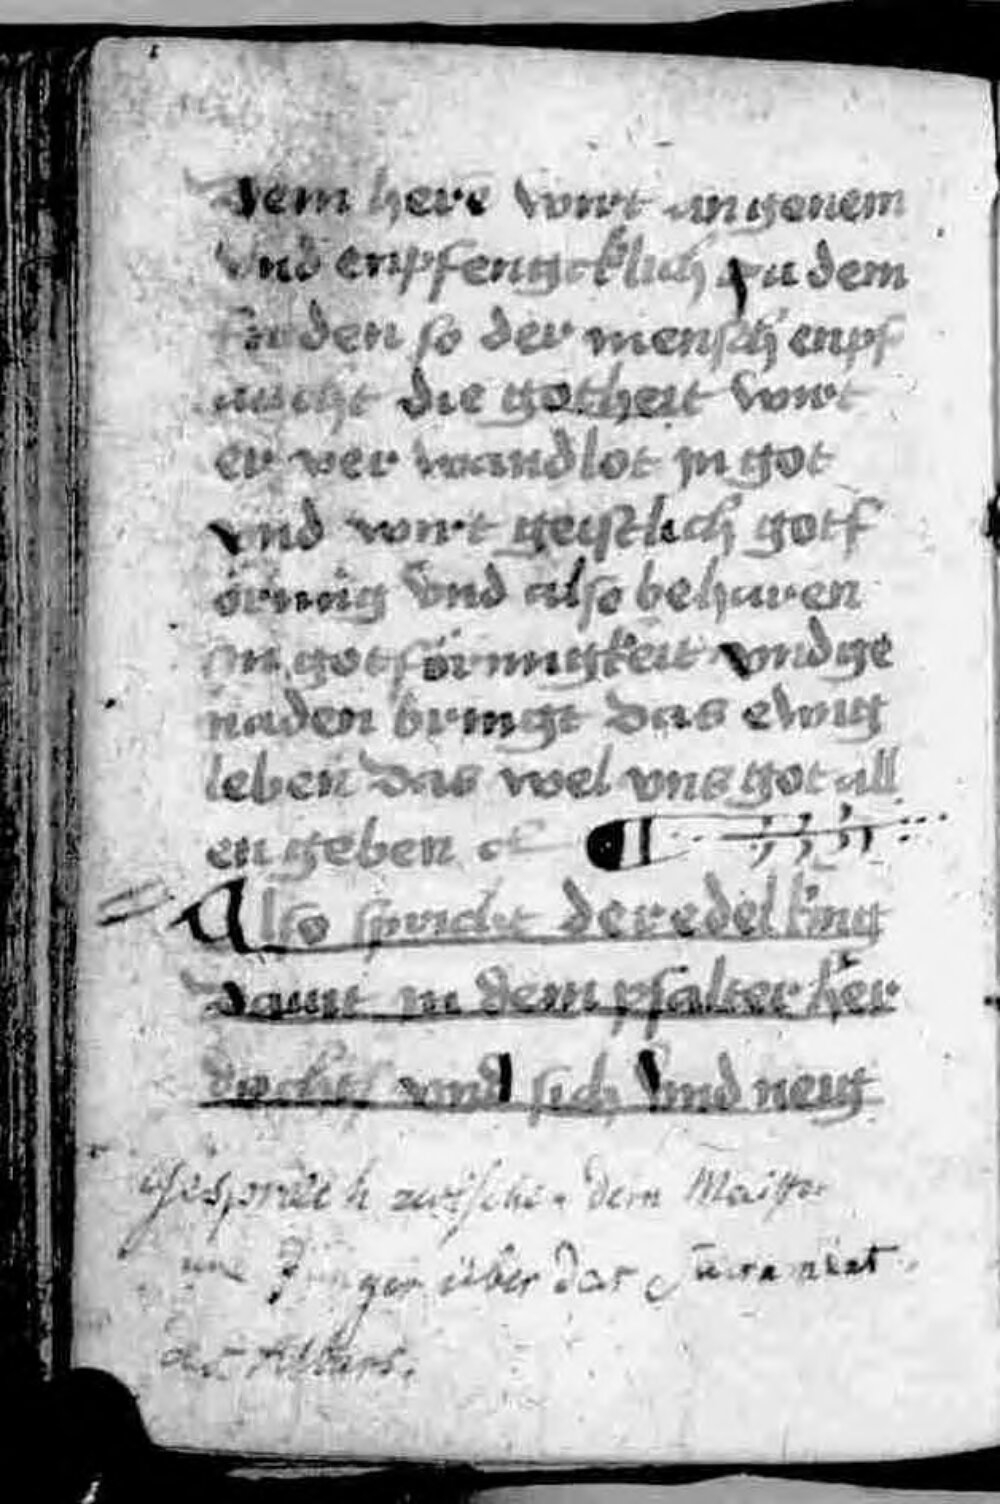 dem here wirt an genem
vnd enpfengcklich zu dem
fruden so der mensch enpf
aucht die gotheit wirt
er ver wandlot in got
vnd wirt geystlich gotf
örmig vnd also beharren
in gotförmigkeit vnd ge
naden bringt das ewig
leben das wel vns got all
en geben
Also spricht der edel king
dauit in dem psalter her
vnd sich vnd neyg
Gespräch zwischen dem Maister
und Jünger über das Sacrament
des Altars.